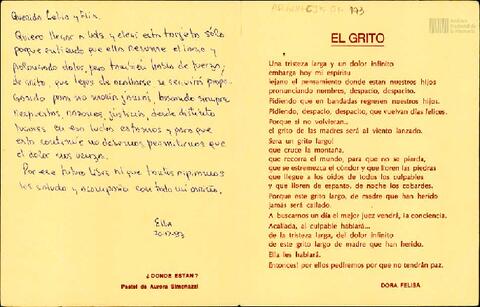 Querido Lelio y Elsa.
Quiero llegar a uds y elegí esta tarjeta sólo
porque entiendo que ella resume el largo y
prolongado dolor, pero también habla de fuerza,
de grito, que lejos de acallarse se seguirá propa-
gando para no morir jamás, buscando siempre
respuestas, razones, justicia desde distintos
lugares en esa lucha estamos y para que
esto continúe no debemos permitirnos que
el dolor nos venza.
Por ese futuro libre ni que todos aspiramos
les saludo y acompaño con todo mi corazón.
Elba
20-12-83
¿DONDE ESTAN?
Pastel de Aurora Simonazzi
193
Archivo
Nacional de
la Memoria
EL GRITO
Una tristeza larga y un dolor infinito
embarga hoy mi espíritu
lejano el pensamiento donde estan nuestros hijos
pronunciando nombres, despacio, despacito.
Pidiendo que en bandadas regresen nuestros hijos.
Pidiendo, despacio, despacito, que vuelvan días felices.
Porque si no volvieran...
el grito de las madres será al viento lanzado.
Sera un grito largo!
que cruce la montaña.
que recorra el mundo, para que no se pierda,
que se estremezca el cóndor y que lloren las piedras
que llegue a los oídos de todos los culpables
y que lloren de espanto, de noche los cobardes.
Porque este grito largo, de madre que han herido
jamás será callado.
A buscarnos un día el mejor juez vendrá, la conciencia.
Acallada, al culpable hablará...
de la tristeza larga, del dolor infinito
de este grito largo de madre que han herido.
Ella les hablará.
Entonces! por ellos pediremos por que no tendrán paz.
DORA FELISA